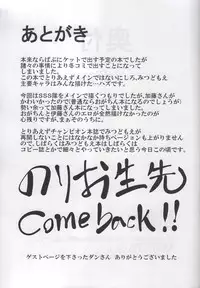 あとがき
本来ならぱぷにケットで出す予定の本でしたが
諸々の事情により冬コミで出すことになって
しまいました。
この本でとりあえずメインではないにしろ、みつどもえ
主要キャラはみんな描けた…ハズです。
今回はSSS隊をメインに描くつもりでしたが、加藤さんが
かわいかったので(普通ならおがちん本になるのでしょうが)
勢い余って加藤さん本になってしまいました。
おがちんと伊藤さんのエロが全然描けなかったのが
心残りですが、まぁそのうちに。
とりあえずチャンピオン本誌でみつどもえが
再開しないことにはなかなか持ちページョンも上がりません
ので、しばらくはみつどもえ本はしばらくは
コピー誌とかで細々とやっていきたいと思う今日この頃です。
のりお生先
Come back!!
ゲストページを下さったダンさん ありがとうございました